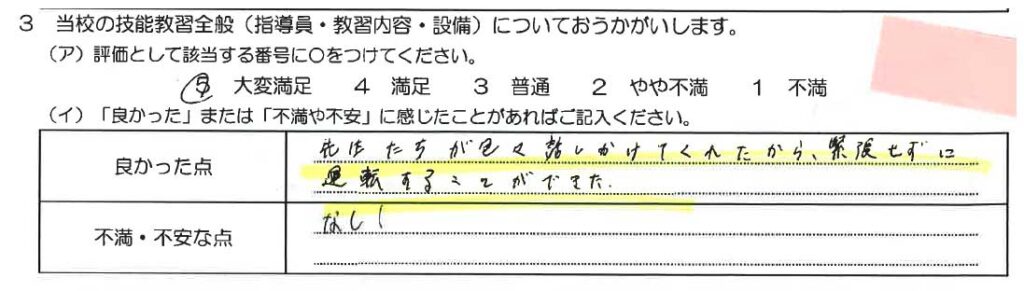 3 当校の技能教習全般（指導員・教習内容・設備）についておうかがいします。
（ア）評価として該当する番号に○をつけてください。
5 大変満足 4 満足 3 普通 2 やや不満 1 不満
（イ）「良かった」または「不満や不安」に感じたことがあればご記入ください。
良かった点
先生たちが色々話しかけてくれたから、緊張せずに
運転することができた.
不満・不安な点
なし!